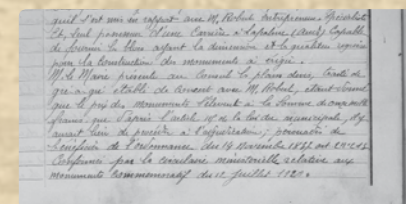 qu'il s'est mis en rapport avec M. Robert entrepreneur Spécialiste
Et, seul possesseur d'une Carrière à Lapalme (Aude) Capable
de fournir le bloc ayant la dimension et la qualité requise
pour la Construction des monuments à ériger.
M. le Maire présente au Conseil le plan, devis, traité de
gré à gré établi de concert avec M. Robert, étant donné
que le prix des monuments s'élevant à la Somme de
francs que d'après l'article de la loi municipale, il y
aurait lieu de procéder à l'adjudication;
bénéficier de l'ordonnance du 14 Novembre 1837 art
Confirmée par la circulaire ministérielle relative aux
monuments Commémoratifs du 12 Juillet 1921.